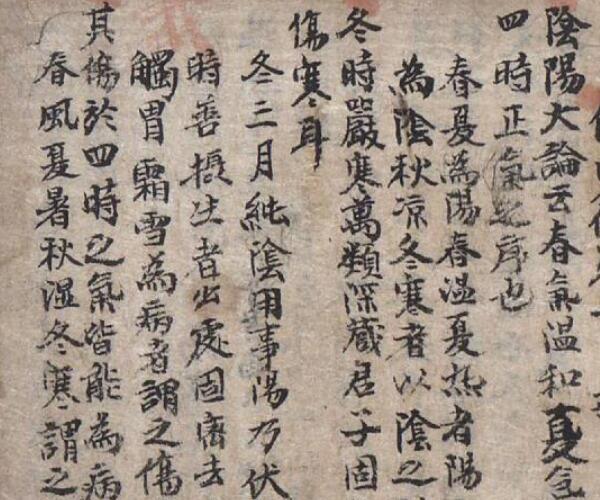 陰陽大論云春氣溫和夏氣
四時正氣之序也
春夏為陽春溫夏熱者陽
為陰秋凉冬寒者以陰之
冬時嚴寒萬類深藏君子固
傷寒耳
冬三月純陰用事陽乃伏
時善攝生者出處固密去
觸冒霜雪為病者謂之傷
其傷於四時之氣皆能為病
春風夏暑秋濕冬寒謂之